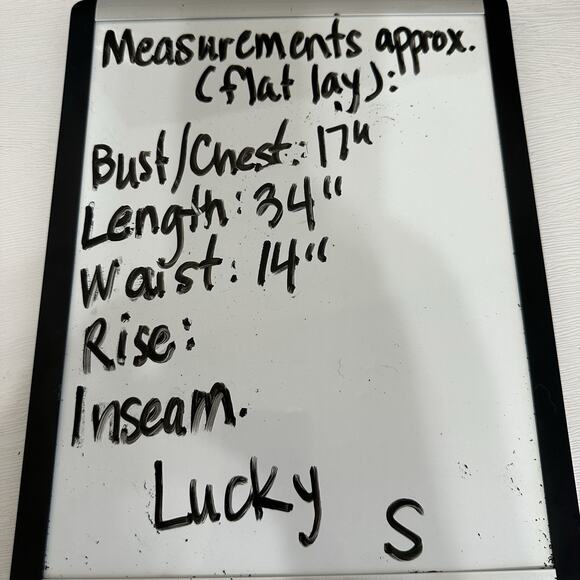 Measurements approx.
(flat lay):
Bust/Chest: 17"
Length: 34"
Waist: 14"
Rise:
Inseam.
Lucky
S